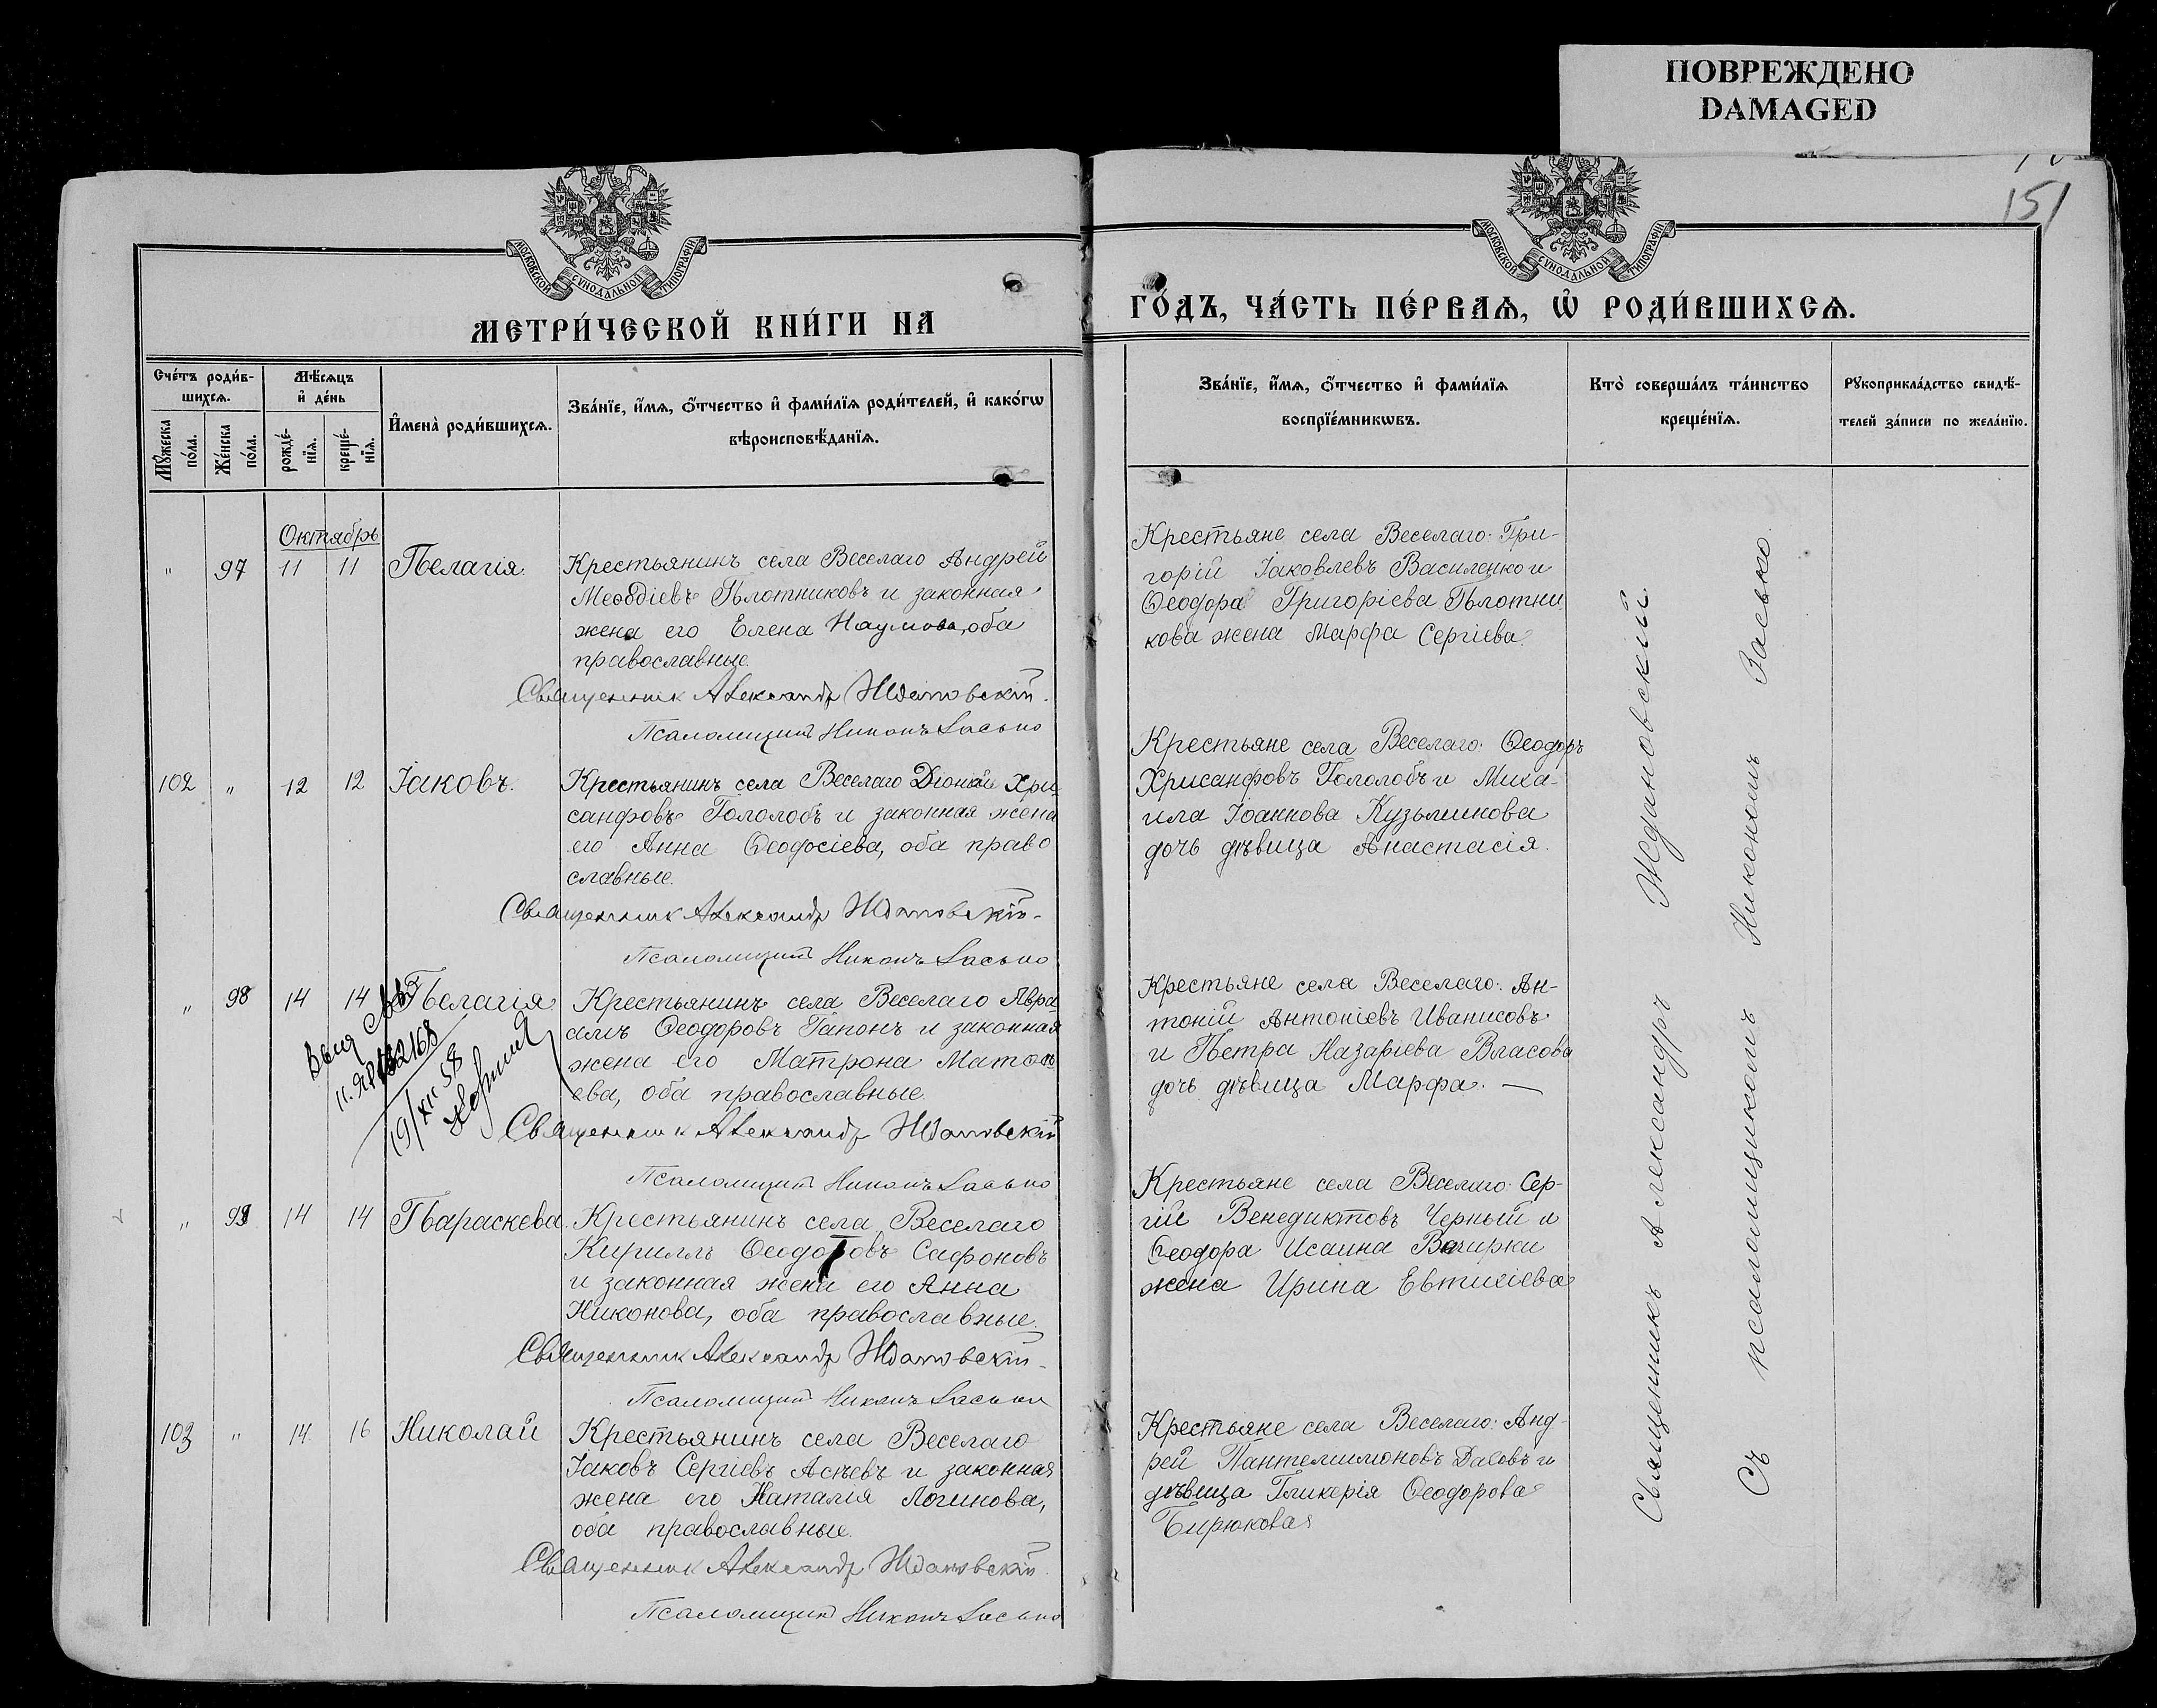 ПОВРЕЖДЕНО
DAMAGED
151
МОСКОВСКОЙ СѴНОДАЛЬНОЙ ТИПОГРАФІИ
МОСКОВСКОЙ СѴНОДАЛЬНОЙ ТИПОГРАФІИ
МЕТРИ́ЧЕСКОЙ КНИ́ГИ НА
ГО́ДЪ, ЧА́СТЬ ПЕ́РВАѦ, Ѡ҆ РОДИ́ВШИХСѦ.
Сче́тъ роди́в-
шихсѧ.
Мѣ́сѧцъ
и҆ де́нь
Мꙋ́жеска
по́ла.
Же́нска
по́ла.
рожде́-
нїѧ.
креще́-
нїѧ.
И҆мена̀ роди́вшихсѧ.
Зва́нїе, и҆́мѧ, ѻ҆́тчество и҆ фами́лїѧ роди́телей, и҆ како́гѡ
вѣроисповѣ́данїѧ.
Зва́нїе, и҆́мѧ, ѻ҆́тчество и҆ фами́лїѧ
воспрїе́мникѡвъ.
Кто̀ соверша́лъ та́инство
креще́нїѧ.
Рꙋкоприкла́дство свидѣ́-
телей за́писи по жела́нїю.
Октябрь
" 97 11 11 Пелагія.
Крестьянинъ села Веселаго Андрей
Меѳодіевъ Плотниковъ и законная
жена его Елена Наумова, оба
православные.
Священник Александр Ждановскій.
Псаломщик Никонъ Засько
Крестьяне села Веселаго: Гри-
горій Іаковлевъ Василенко и
Ѳеодора Григоріева Плотни
кова жена Марѳа Сергіева.
102 " 12 12 Іаковъ.
Крестьянинъ села Веселаго Діонисій Хри-
санфовъ Гололобъ и законная жена
его Анна Ѳеодосіева, оба право
славные.
Священник Александр Ждановскій.
Псаломщик Никонъ Засько
Крестьяне села Веселаго: Ѳеодоръ
Хрисанфовъ Гололобъ и Миха-
ила Іоаннова Кузьминова
дочь дѣвица Анастасія.
" 98 14 14 Пелагія
Крестьянинъ села Веселаго Авра
амъ Ѳеодоровъ Гапонъ и законная
жена его Матрона Матѳ
ева, оба православные.
Священник Александр Ждановскій
Псаломщик Никонъ Засько
19/XII 58
Крестьяне села Веселаго: Ан-
тоній Антоніевъ Иванисовъ
и Петра Назаріева Власова
дочь дѣвица Марѳа. —
" 99 14 14 Параскева.
Крестьянинъ села Веселаго
Кириллъ Ѳеодотовъ Сафоновъ
и законная жена его Анна
Никонова, оба православные.
Священник Александр Ждановскій.
Псаломщик Никонъ Засько
Крестьяне села Веселаго: Сер-
гій Венедиктовъ Черный и
Ѳеодора Исаина Вачирки
жена Ирина Евтихіева
103 " 14 16 Николай
Крестьянинъ села Веселаго
Іаковъ Сергіевъ Асѣевъ и законная
жена его Наталія Логинова,
оба православные.
Священник Александр Ждановскій.
Псаломщик Никонъ Засько
Крестьяне села Веселаго: Анд-
рей Пантелиимоновъ Дасовъ и
дѣвица Гликерія Ѳеодорова
Бирюкова
Священникъ Александръ Ждановскій
Съ псаломщикомъ Никономъ Засько